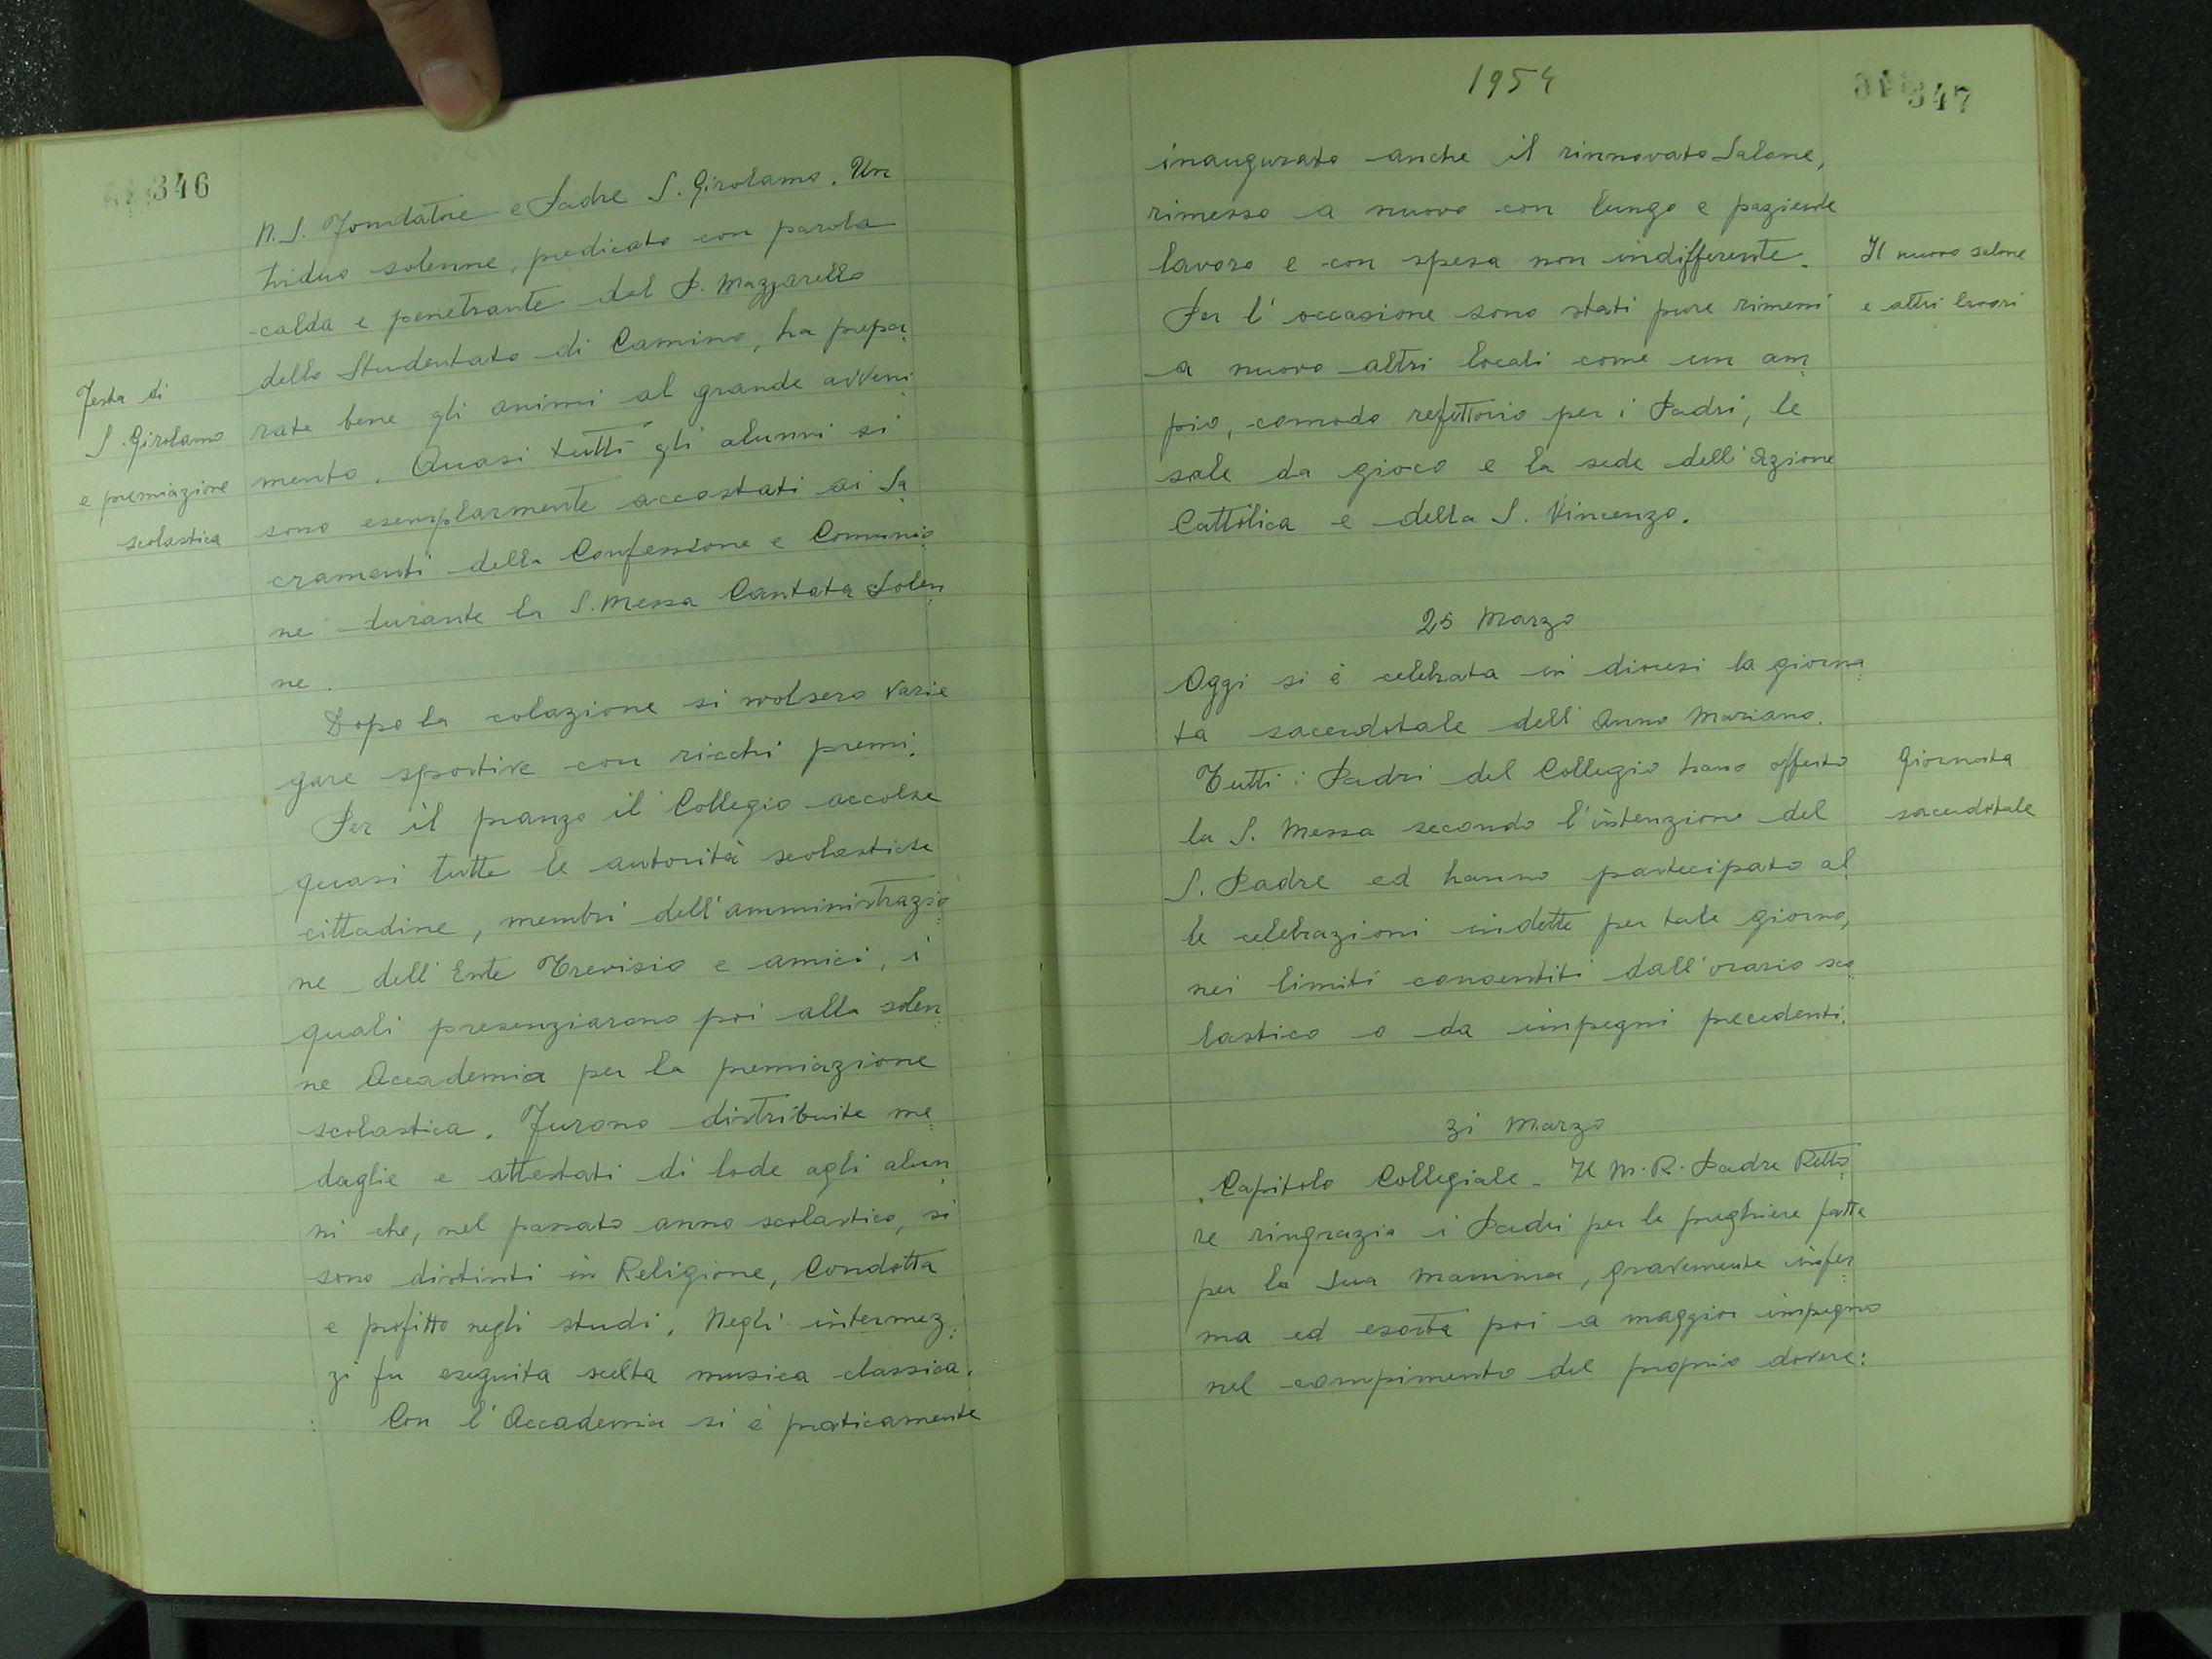 346
N. S. Fondatore e Padre S. Girolamo. Un
triduo solenne, predicato con parola
calda e penetrante dal P. Mazzarello
dello Studentato di Camino, ha prepa
rate bene gli animi al grande avveni
Festa di
S. Girolamo
e premiazione
scolastica
mento. Quasi tutti gli alunni si
sono esemplarmente accostati ai Sa
cramenti della Confessione e Comunio
ne durante la S. Messa Cantata Solen
ne.
Dopo la colazione si svolsero varie
gare sportive con ricchi premi.
Per il pranzo il Collegio accolse
quasi tutte le autorità scolastiche
cittadine, membri dell'amministrazio
ne dell'Ente Trevisio e amici, i
quali presenziarono poi alla solen
ne Accademia per la premiazione
scolastica. Furono distribuite me
daglie e attestati di lode agli alun
ni che, nel passato anno scolastico, si
sono distinti in Religione, Condotta
e profitto negli studi. Negli intermez
zi fu eseguita scelta musica classica.
Con l'Accademia si è praticamente
1954
347
inaugurato anche il rinnovato Salone,
rimesso a nuovo con lungo e paziente
lavoro e con spesa non indifferente.
Il nuovo salone
e altri lavori
Per l'occasione sono stati pure rimessi
a nuovo altri locali come un am
pio, comodo refettorio per i Padri, le
sale da gioco e la sede dell'Azione
Cattolica e della S. Vincenzo.
25 Marzo
Oggi si è celebrata in diocesi la giorna
ta sacerdotale dell'Anno Mariano.
Giornata
sacerdotale
Tutti i Padri del Collegio hano offerto
la S. Messa secondo l'intenzione del
S. Padre ed hanno partecipato al
le celebrazioni indette per tale giorno,
nei limiti consentiti dall'orario sco
lastico o da impegni precedenti.
31 Marzo
Capitolo Collegiale - Il M. R. Padre Retto
re ringrazia i Padri per le preghiere fatte
per la sua mamma, gravemente infer
ma ed esorta poi a maggior impegno
nel compimento del proprio dovere: